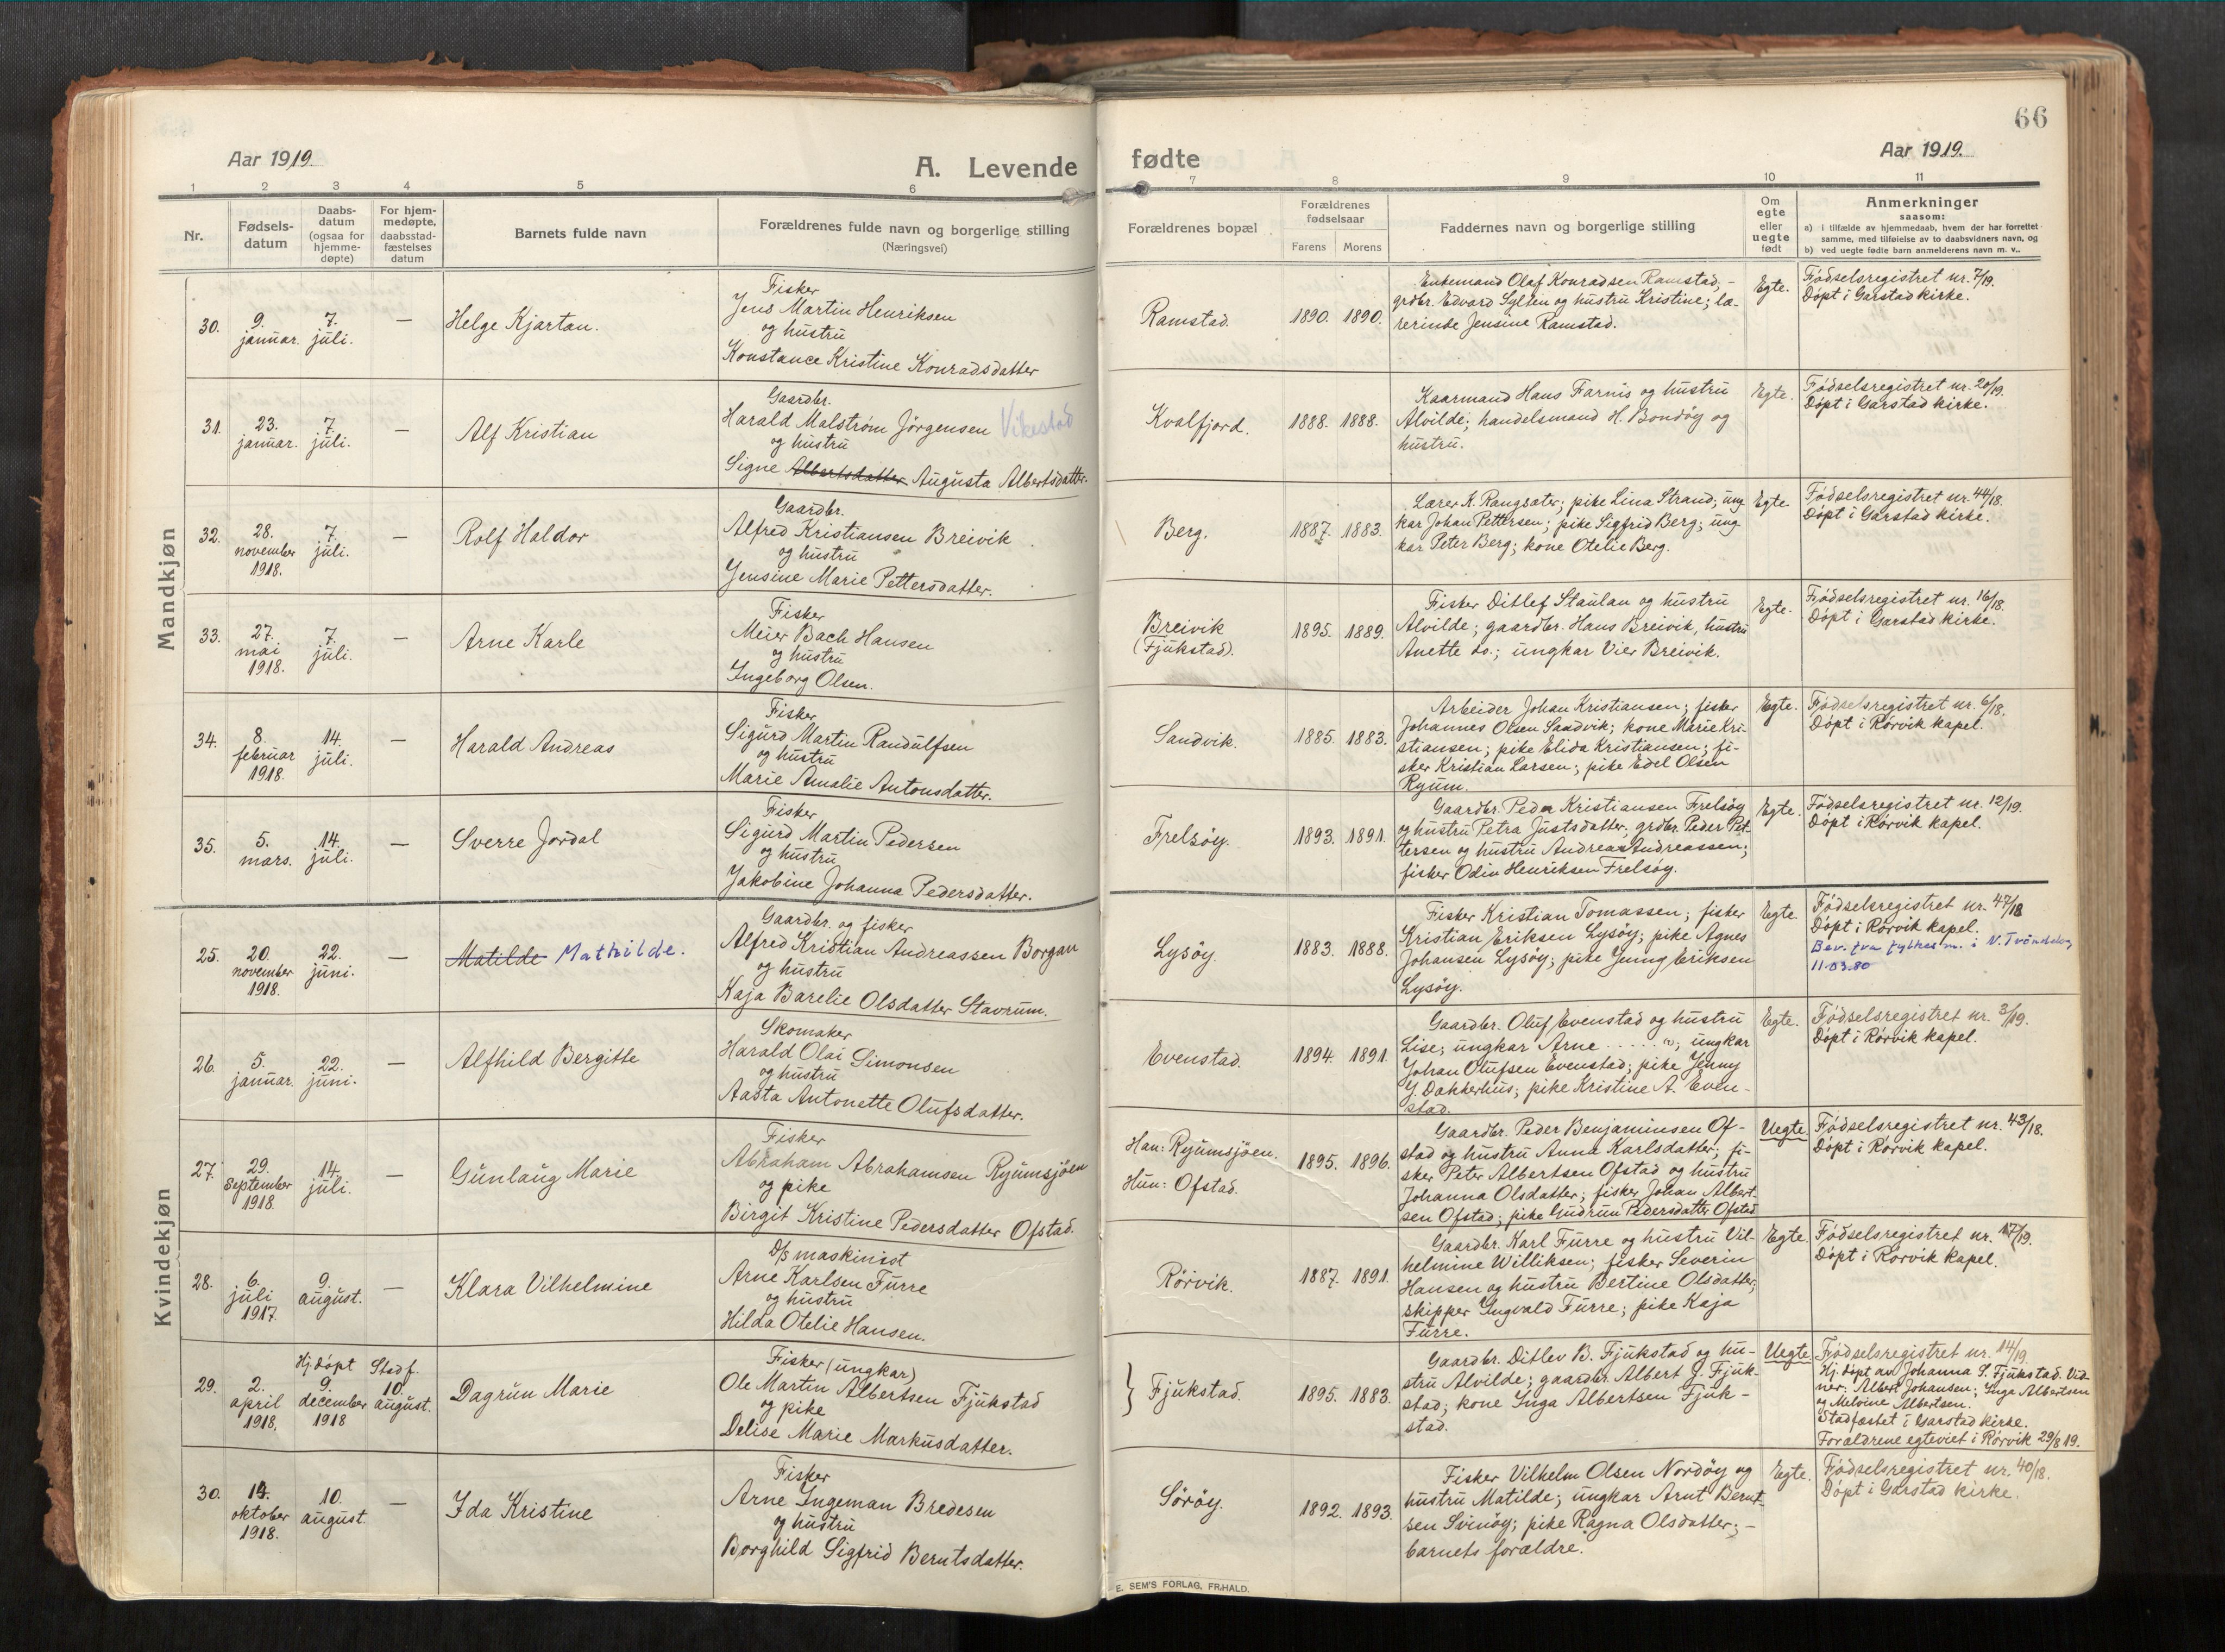 66
Aar 1919.
A. Levende
fødte
Aar 1919.
1 2 3 4 5 6 7 8 9 10 11
Nr.
Fødsels-
datum
Daabs-
datum
(ogsaa for
hjemme-
døpte)
For hjem-
medøpte,
daabsstad-
fæstelses
datum
Barnets fulde navn
Forældrenes fulde navn og borgerlige stilling
(Næringsvei)
Forældrenes bopæl
Forældrenes
fødselsaar
Farens Morens
Faddernes navn og borgerlige stilling
Om
egte
eller
uegte
født
Anmerkninger
saasom:
a) i tilfælde av hjemmedaab, hvem der har forrettet
samme, med tilføielse av to daabsvidners navn, og
b) ved uegte fødte barn anmelderens navn m. v..
Mandkjøn
30.
9.
januar.
7.
juli.
—
Helge Kjartan.
Fisker
Jens Martin Henriksen
og hustru
Konstance Kristine Konradsdatter
Ramstad.
1890. 1890.
Enkemand Olaf Konradsen Ramstad, -
grdbr. Edvard Sylten og hustru Kristine; læ-
rerinde Jensine Ramstad.
Egte.
Fødselsregistret nr. 7/19.
Døpt i Garstad kirke.
31.
23.
januar.
7.
juli.
—
Alf Kristian
Gaardbr.
Harald Malstrøm Jørgensen Vikestad
og hustru
Signe Albertsdatter Augusta Albertsdatter.
Kvalfjord.
1888. 1888.
Kaarmand Hans Farnis og hustru
Alvilde; handelsmand H. Bondøy og
hustru.
Egte.
Fødselsregistret nr. 20/19.
Døpt i Garstad kirke.
32.
28.
november
1918.
7.
juli.
—
Rolf Haldor
Gaardbr.
Alfred Kristiansen Breivik
og hustru
Jensine Marie Pettersdatter.
Berg.
1887. 1883.
Lærer K. Rangsæter; pike Lina Strand; ung
kar Johan Pettersen; pike Sigfrid Berg; ung
kar Peter Berg; kone Otelie Berg.
Egte.
Fødselsregistret nr. 44/18.
Døpt i Garstad kirke.
33.
27.
mai
1918.
7.
juli.
—
Arne Karle
Fisker
Meier Bach Hansen
og hustru
Ingeborg Olsen.
Breivik
(Fjukstad).
1895. 1889.
Fisker Ditlef Staulan og hustru
Alvilde; gaardbr. Hans Breivik, hustru
Anette do.; ungkar Vier Breivik.
Egte.
Fødselsregistret nr. 16/18.
Døpt i Garstad kirke.
34.
8.
februar
1918.
14.
juli.
—
Harald Andreas
Fisker
Sigurd Martin Randulfsen
og hustru
Marie Amalie Antonsdatter.
Sandvik.
1885. 1883.
Arbeider Johan Kristiansen; fisker
Johannes Olsen Sandvik; kone Marie Kri-
stiansen; pike Elida Kristiansen; fi-
sker Kristian Larsen; pike Edel Olsen
Ryum.
Egte.
Fødselsregistret nr. 6/18.
Døpt i Rørvik kapel.
35.
5.
mars.
14.
juli.
—
Sverre Jordal
Fisker
Sigurd Martin Pedersen
og hustru
Jakobine Johanna Pedersdatter.
Frelsøy.
1893. 1891.
Gaardbr. Peder Kristiansen Frelsøy
og hustru Petra Justsdatter; grdbr. Peder Pet-
tersen og hustru Andrea Andreassen;
fisker Odin Henriksen Frelsøy.
Egte.
Fødselsregistret nr. 12/19.
Døpt i Rørvik kapel.
Kvindekjøn
25.
20.
november
1918.
22.
juni.
—
Matilde Mathilde.
Gaardbr. og fisker
Alfred Kristian Andreassen Borgan
og hustru
Kaja Barelie Olsdatter Stavrum.
Lysøy.
1883. 1888.
Fisker Kristian Tomassen; fisker
Kristian Eriksen Lysøy; pike Agnes
Johansen Lysøy; pike Jenny Eriksen
Lysøy.
Egte.
Fødselsregistret nr. 47/18
Døpt i Rørvik kapel.
Bev. fra fylkesm. i N. Trøndelag
11.03.80
26.
5.
januar.
22.
juni.
—
Alfhild Bergitte
Skomaker
Harald Olai Simonsen
og hustru
Aasta Antonette Olufsdatter.
Evenstad.
1894. 1891.
Gaardbr. Oluf Evenstad og hustru
Lise; ungkar Arne . . . . . ; ungkar
Johan Olufsen Evenstad; pike Jenny
J. Dakkerhus; pike Kristine A. Even-
stad.
Egte.
Fødselsregistret nr. 3/19.
Døpt i Rørvik kapel.
27.
29.
september
1918.
14.
juli.
—
Gunlaug Marie
Fisker
Abraham Abrahamsen Ryumsjøen
og pike
Birgit Kristine Pedersdatter Ofstad.
Han: Ryumsjøen.
Hun: Ofstad.
1895. 1896.
Gaardbr. Peder Benjaminsen Of-
stad og hustru Anna Karlsdatter; fi-
sker Peter Albertsen Ofstad og hustru
Johanna Olsdatter; fisker Johan Albert-
sen Ofstad; pike Gudrun Pedersdatter Ofstad
Uegte.
Fødselsregistret nr. 43/18.
Døpt i Rørvik kapel.
28.
6.
juli
1917.
9.
august.
—
Klara Vilhelmine
D/S maskinist
Arne Karlsen Furre
og hustru
Hilda Otelie Hansen.
Rørvik.
1887. 1891.
Gaardbr. Karl Furre og hustru Vil-
helmine Williksen; fisker Severin
Hansen og hustru Bertine Olsdatter;
skipper Ingvald Furre; pike Kaja
Furre.
Egte.
Fødselsregistret nr. 17/19.
Døpt i Rørvik kapel.
29.
2.
april
1918.
Hj. døpt
9.
december
1918
Stadf.
10.
august.
Dagrun Marie
Fisker (ungkar)
Ole Martin Albertsen Fjukstad
og pike
Delise Marie Markusdatter.
} Fjukstad.
1895. 1883.
Gaardbr. Ditlev B. Fjukstad og hu-
stru Alvilde; gaardbr. Albert J. Fjuk-
stad; kone Inga Albertsen Fjuk-
stad.
Uegte
Fødselsregistret nr. 14/19.
Hj. døpt av Johanna S. Fjukstad. Vid-
ner: Albert Johansen; Inga Albertsen
og Melvine Albertsen.
Stadfæstet i Garstad kirke.
Forældrene egteviet i Rørvik 29/8 19.
30.
14.
oktober
1918.
10.
august.
—
Ida Kristine
Fisker
Arne Ingeman Bredesen
og hustru
Borghild Sigfrid Berntsdatter.
Sørøy.
1892. 1893.
Fisker Vilhelm Olsen Nordøy og
hustru Matilde; ungkar Arnt Bernt-
sen Svinøy; pike Ragna Olsdatter; -
barnets forældre.
Egte.
Fødselsregistret nr. 40/18.
Døpt i Garstad kirke.
E. SEM'S FORLAG, FR.HALD.